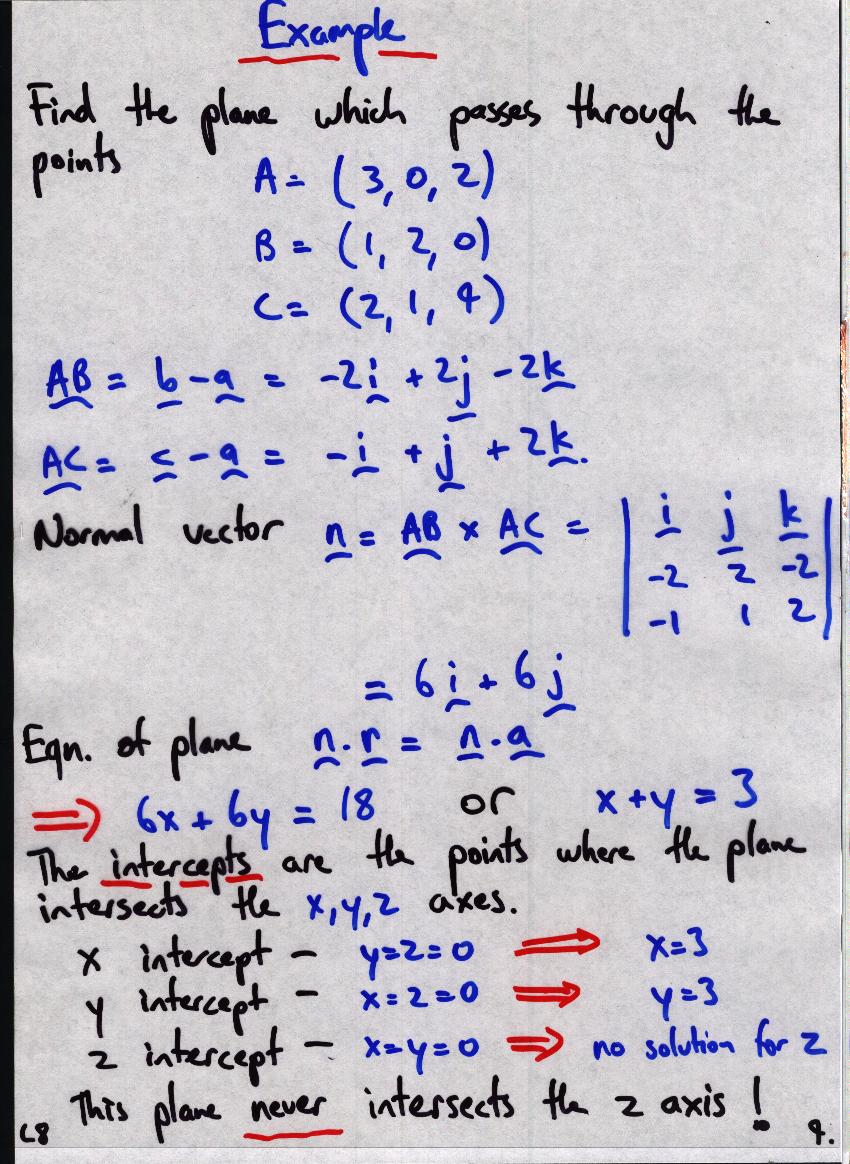 Example
Find the plane which passes through the
points
A = (3, 0, 2)
B = (1, 2, 0)
C = (2, 1, 4)
AB = b - a = -2i + 2j - 2k
AC = c - a = -i + j + 2k.
Normal vector n = AB × AC = | i j k |
| -2 2 -2 |
| -1 1 2 |
= 6i + 6j
Eqn. of plane n . r = n . a
⇒ 6x + 6y = 18 or x + y = 3
The intercepts are the points where the plane
intersects the x, y, z axes.
x intercept - y = z = 0 ⇒ x = 3
y intercept - x = z = 0 ⇒ y = 3
z intercept - x = y = 0 ⇒ no solution for z
This plane never intersects the z axis !
L8 4.